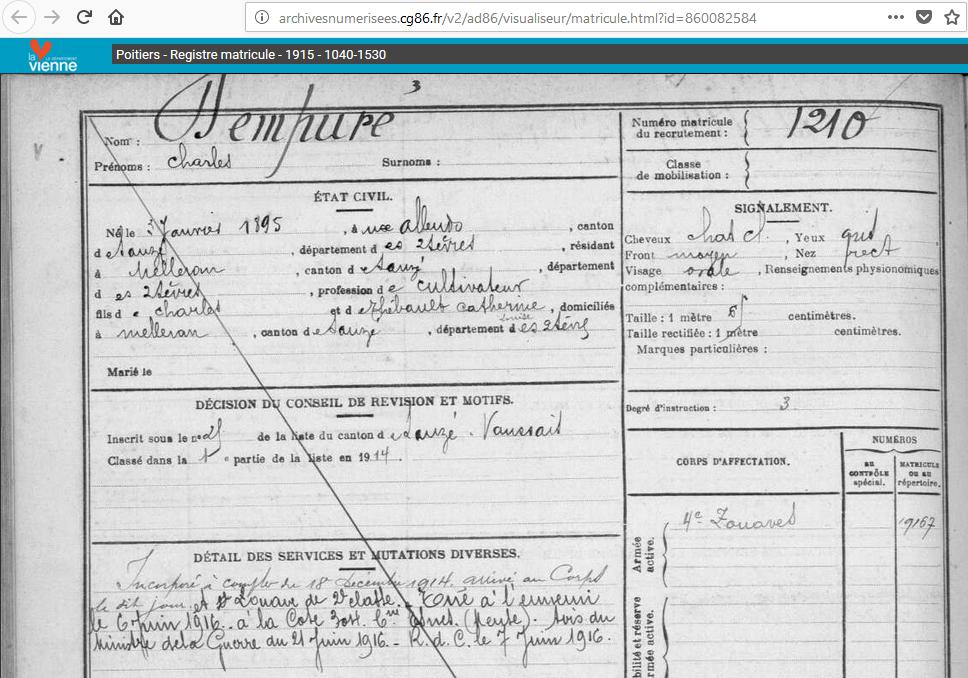 archivesnumerisees.cg86.fr/v2/ad86/visualiseur/matricule.html?id=860082584
la vienne
LE DÉPARTEMENT
Poitiers - Registre matricule - 1915 - 1040-1530
3
Nom : Dempure
Prénoms : Charles Surnoms :
Numéro matricule du recrutement : 1210
Classe de mobilisation :
ÉTAT CIVIL.
Né le 3 Janvier 1895, à , canton
d e Sauzé, département d es 2 Sèvres, résidant
à Melleran, canton d e Sauzé, département
d es 2 Sèvres, profession d e cultivateur
fils d e Charles et d e Thébault Catherine Louise, domiciliés
à Melleran, canton d e Sauzé, département d es 2 Sèvres
Marié le
SIGNALEMENT.
Cheveux chat cl., Yeux gris
Front moyen, Nez rect
Visage ovale, Renseignements physionomiques
complémentaires :
Taille : 1 mètre centimètres.
Taille rectifiée : 1 mètre centimètres.
Marques particulières :
Degré d'instruction : 3
DÉCISION DU CONSEIL DE REVISION ET MOTIFS.
Inscrit sous le n° de la liste du canton d e Sauzé-Vaussais
Classé dans la 1e partie de la liste en 1914.
CORPS D'AFFECTATION.
NUMÉROS
AU CONTRÔLE spécial.
MATRICULE OU AU répertoire.
Armée active.
4e Zouaves 19167
bilité et réserve
rmée active.
DÉTAIL DES SERVICES ET MUTATIONS DIVERSES.
Incorporé à compter du 18 Décembre 1914, arrivé au Corps
le dit jour et Zouave de 2e classe. Tué à l'ennemi
le 6 Juin 1916 à la Cote (Meuse). Avis du
Ministre de la Guerre du 21 Juin 1916. R. d. C. le 7 Juin 1916.